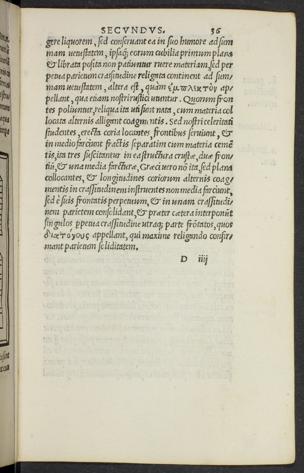 SECVNDVS. 36
gere liquorem, sed conseruant ea in suo humore ad sum
mam uetustatem, ipsaq; eorum cubilia primum plana
& librata posita non patiuntur ruere materiam, sed per
petua parietum crassitudine religata continent ad sum/
mam uetustatem, altera est, quàm ἔμπλεκτον ap/
pellant, qua etiam nostri rustici utuntur. Quorum fron
tes poliuntur, reliqua ita ut sunt nata, cum materia col
locata alternis alligant coagmentis. Sed nostri celeritati
studentes, erecta coria locantes, frontibus seruiunt, &
in medio farciunt fractis separatim cum materia cemē
tis, ita tres suscitantur in ea structura crustæ, duæ fron/
tiū, & una media farcturæ, Græci uero nō ita, sed plana
collocantes, & longitudines coriorum alternis coag/
mentis in crassitudinem instruentes non media farciunt,
sed è suis frontatis perpetuum, & in unam crassitudi/
nem parietem consolidant, & præter cætera interponūt
singulos ppetua crassitudine utraq; parte frōtatos, quos
διατόνους appellant, qui maxime religando confir
mant parietum soliditatem.
D iiij